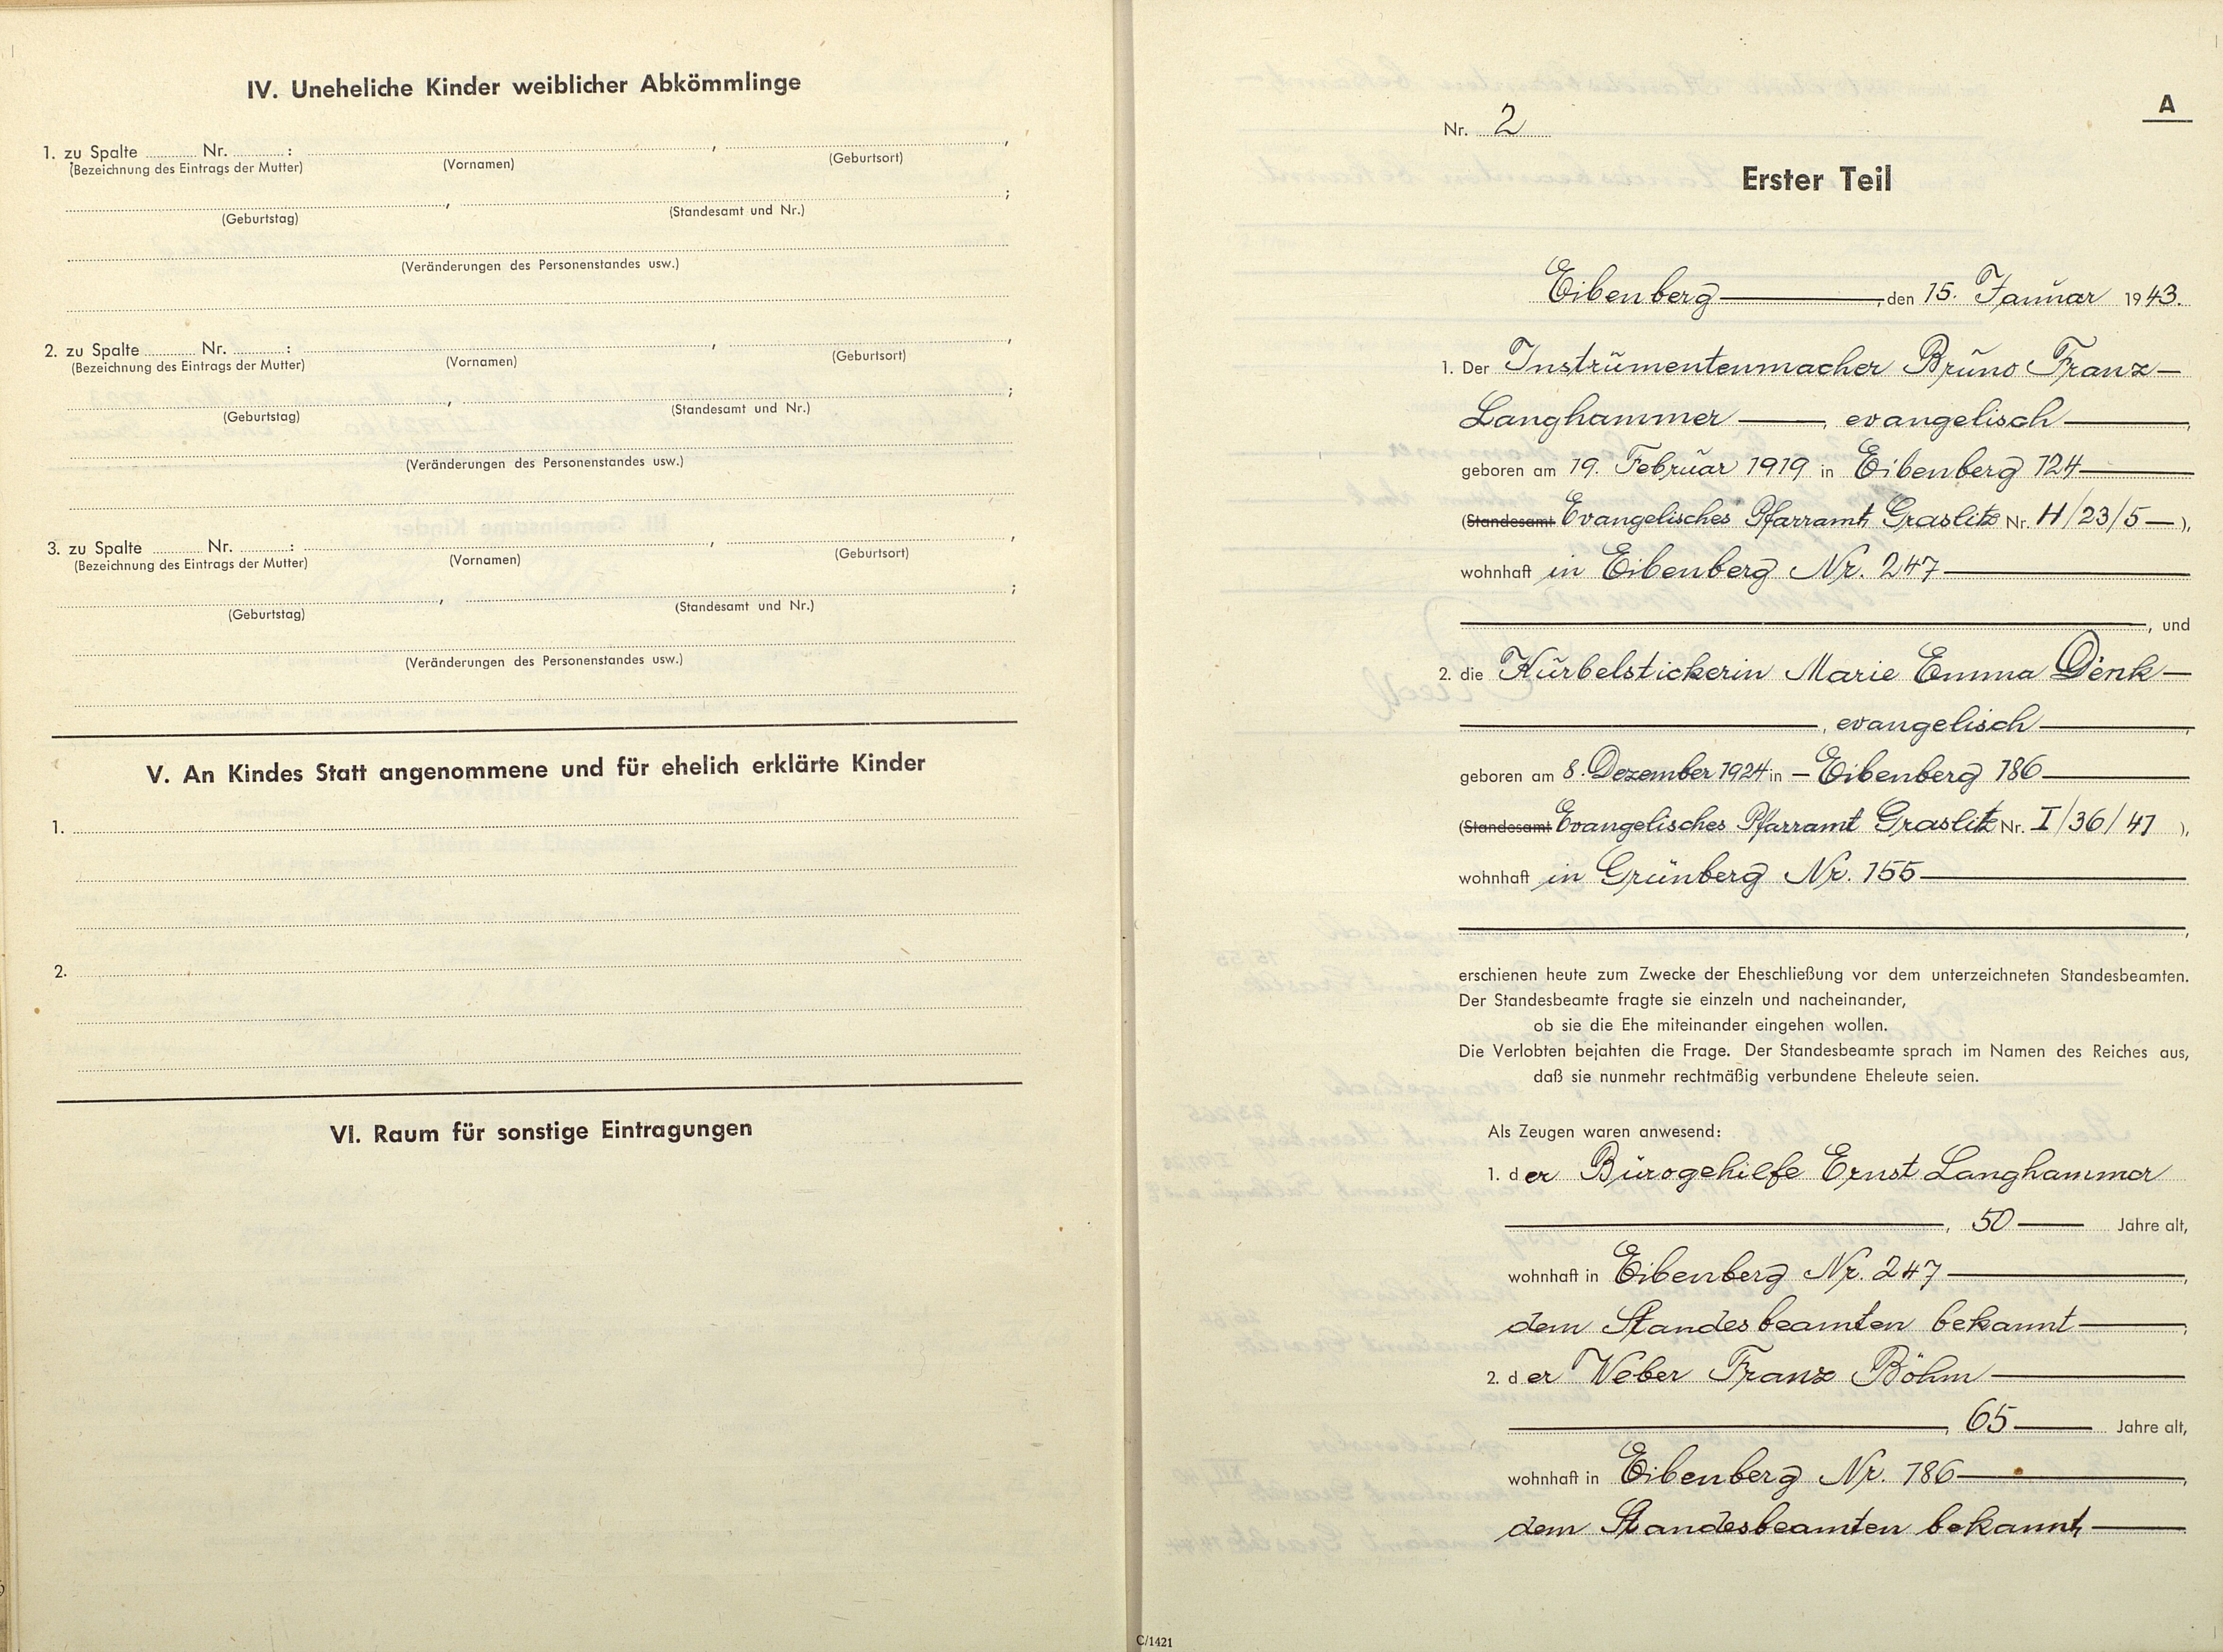 IV. Uneheliche Kinder weiblicher Abkömmlinge
1. zu Spalte ........ Nr. ........ : ........ , ........ ,
(Bezeichnung des Eintrags der Mutter) (Vornamen) (Geburtsort)
........ , ........ ;
(Geburtstag) (Standesamt und Nr.)
(Veränderungen des Personenstandes usw.)
2. zu Spalte ........ Nr. ........ : ........ , ........ ,
(Bezeichnung des Eintrags der Mutter) (Vornamen) (Geburtsort)
........ , ........ ;
(Geburtstag) (Standesamt und Nr.)
(Veränderungen des Personenstandes usw.)
3. zu Spalte ........ Nr. ........ : ........ , ........ ,
(Bezeichnung des Eintrags der Mutter) (Vornamen) (Geburtsort)
........ , ........ ;
(Geburtstag) (Standesamt und Nr.)
(Veränderungen des Personenstandes usw.)
V. An Kindes Statt angenommene und für ehelich erklärte Kinder
1.
2.
VI. Raum für sonstige Eintragungen
A
Nr. 2
Erster Teil
Eibenberg ——, den 15. Januar 1943.
1. Der Instrumentenmacher Bruno Franz —
Langhammer ——, evangelisch ——,
geboren am 19. Februar 1919 in Eibenberg 124 ——
(Standesamt Evangelisches Pfarramt Graslitz Nr. H/23/5 — ),
wohnhaft in Eibenberg Nr. 247 ——
——, und
2. die Kurbelstickerin Marie Emma Denk —
——, evangelisch ——,
geboren am 8. Dezember 1924 in — Eibenberg 186 ——
(Standesamt Evangelisches Pfarramt Graslitz Nr. I/36/41 ),
wohnhaft in Grünberg Nr. 155 ——
——,
erschienen heute zum Zwecke der Eheschließung vor dem unterzeichneten Standesbeamten.
Der Standesbeamte fragte sie einzeln und nacheinander,
ob sie die Ehe miteinander eingehen wollen.
Die Verlobten bejahten die Frage. Der Standesbeamte sprach im Namen des Reiches aus,
daß sie nunmehr rechtmäßig verbundene Eheleute seien.
Als Zeugen waren anwesend:
1. der Bürogehilfe Ernst Langhammer
——, 50 —— Jahre alt,
wohnhaft in Eibenberg Nr. 247 ——,
dem Standesbeamten bekannt ——,
2. der Weber Franz Böhm ——
——, 65 —— Jahre alt,
wohnhaft in Eibenberg Nr. 186 ——,
dem Standesbeamten bekannt ——
C/1421